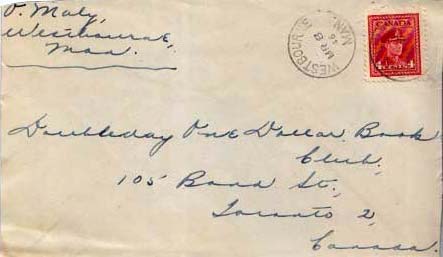 O. Maly,
Westbourne,
Man.
WESTBOURNE
MAN.
MR 8
CANADA
4 CENTS 4
Doubleday One Dollar Book
Club,
105 Bond St.,
Toronto 2,
Canada.